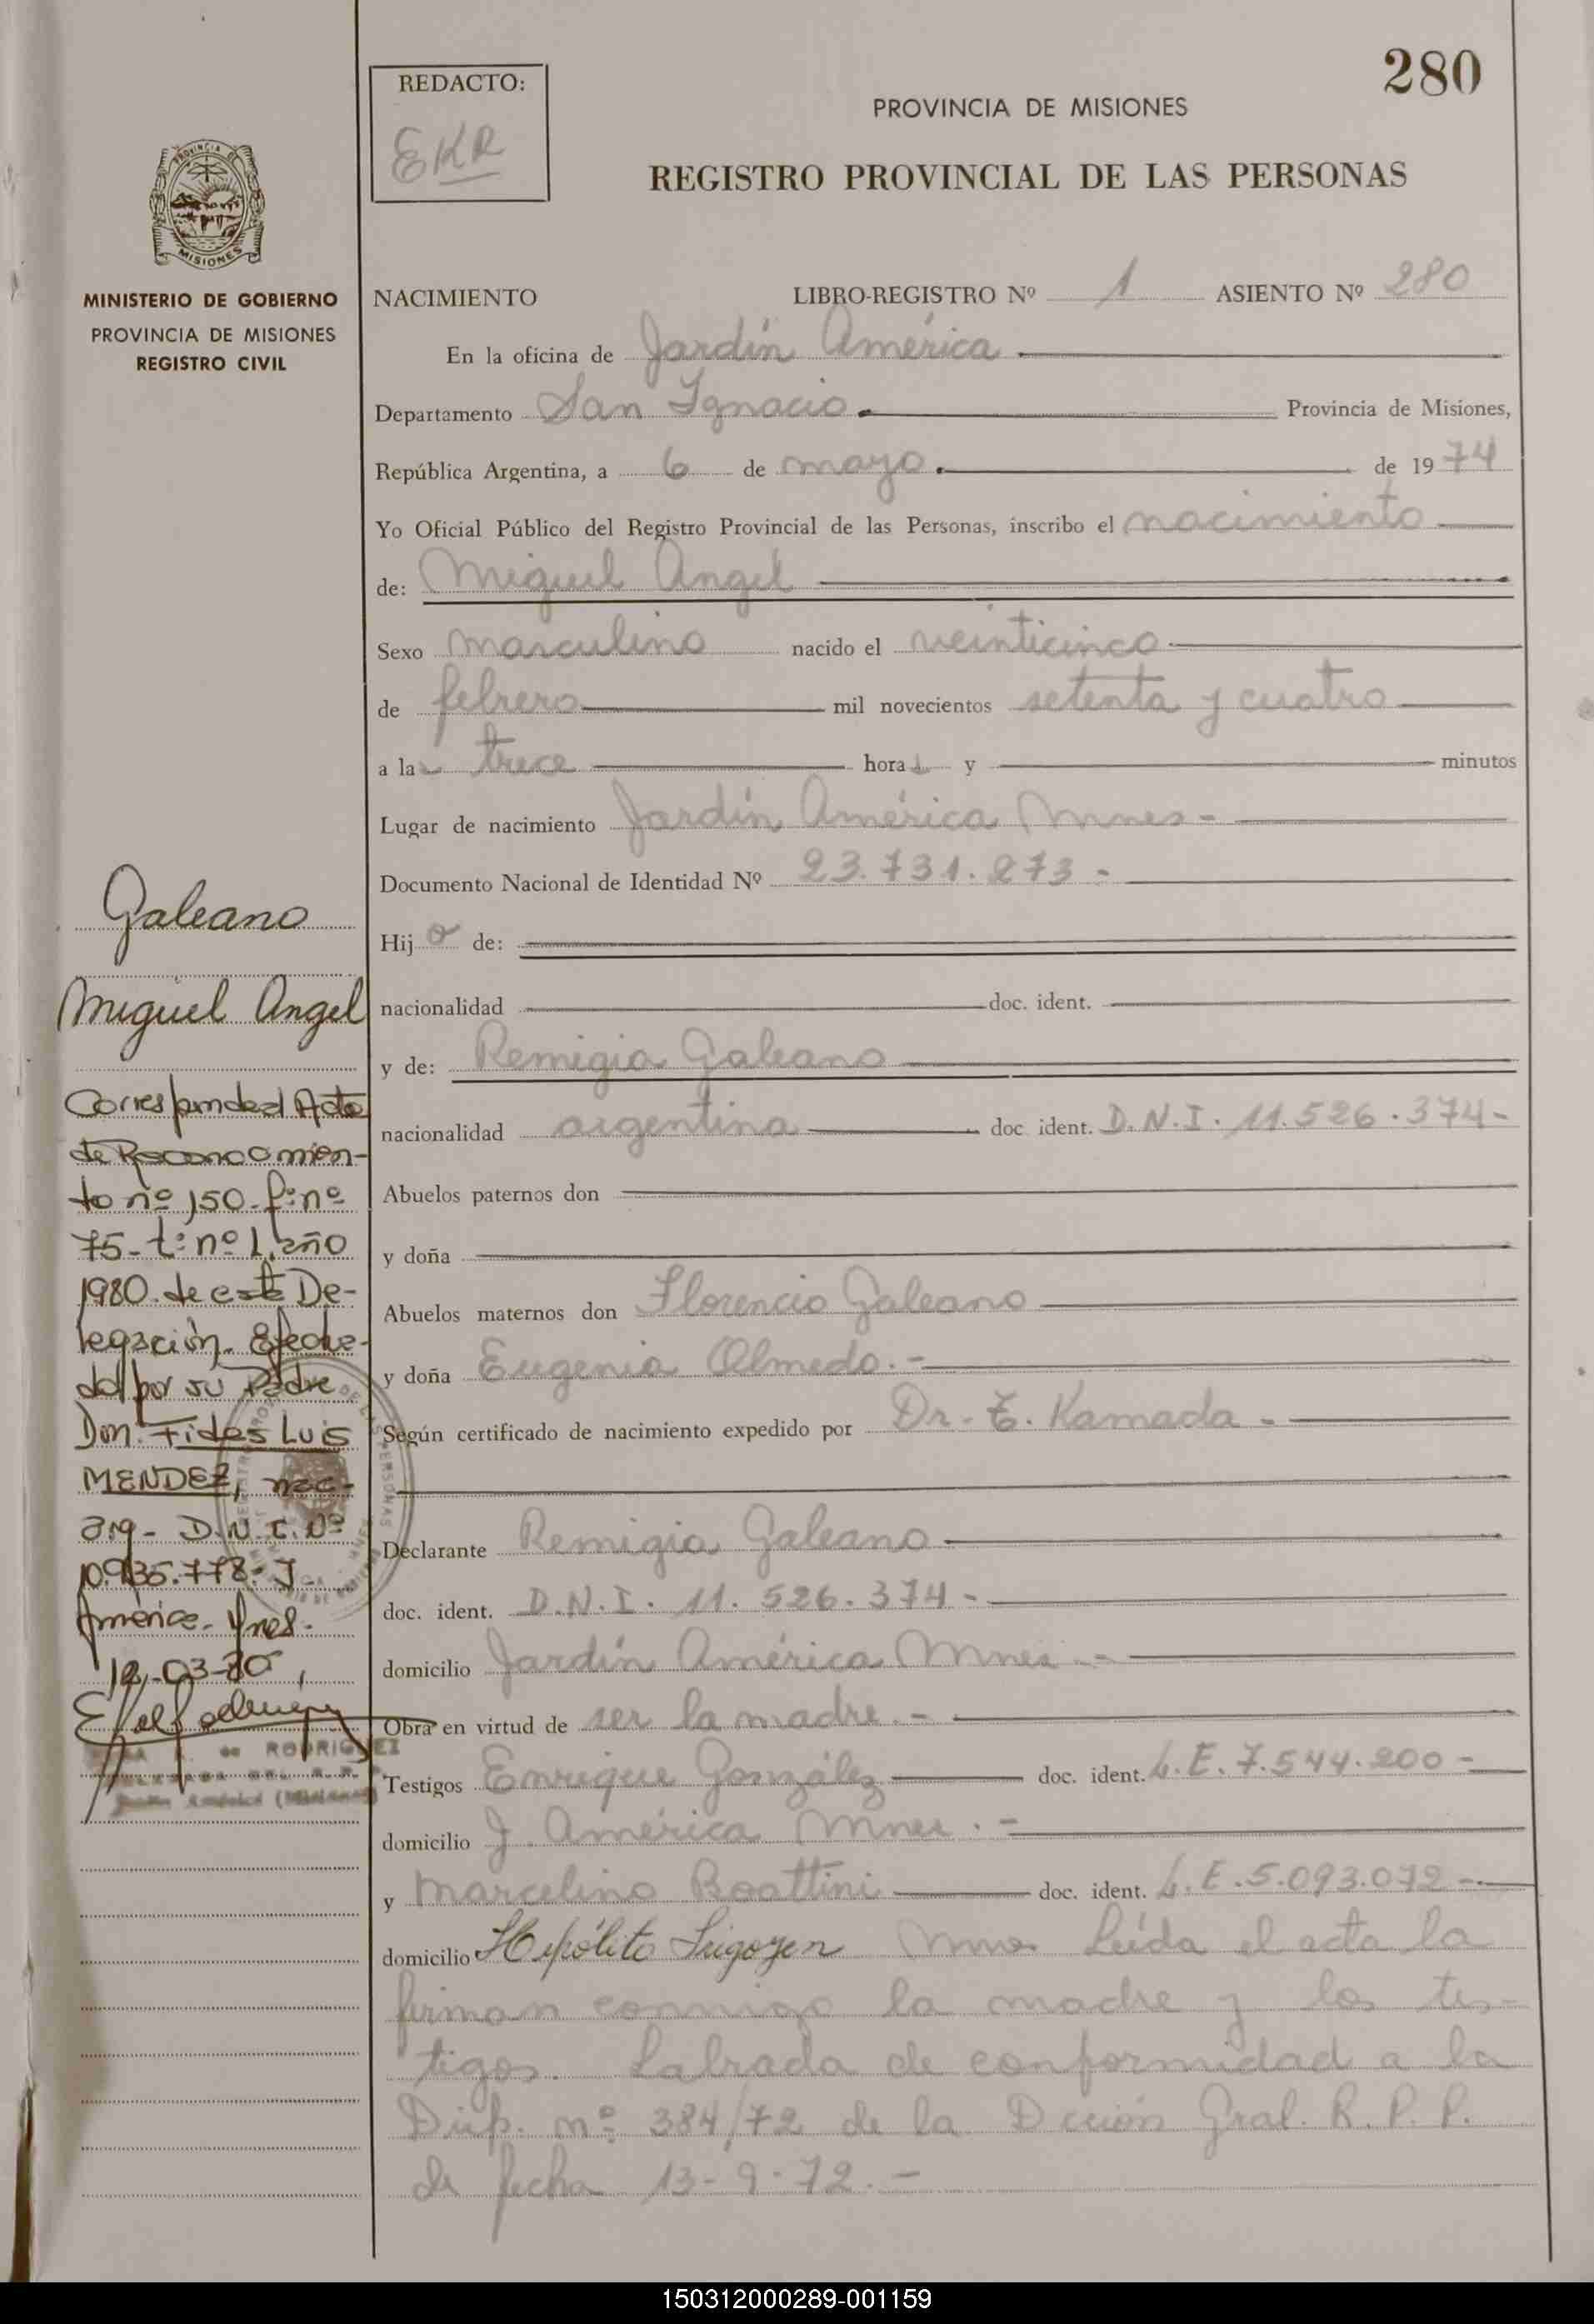 280
REDACTO:
EKR
PROVINCIA DE MISIONES
REGISTRO PROVINCIAL DE LAS PERSONAS
MISIONES
MINISTERIO DE GOBIERNO
PROVINCIA DE MISIONES
REGISTRO CIVIL
NACIMIENTO LIBRO-REGISTRO Nº 1 ASIENTO Nº 280
En la oficina de Jardín América
Departamento San Ignacio. Provincia de Misiones,
República Argentina, a 6 de mayo. de 1974
Yo Oficial Público del Registro Provincial de las Personas, inscribo el nacimiento
de: Miguel Angel
Sexo masculino nacido el veinticinco
de febrero mil novecientos setenta y cuatro
a las trece horas y minutos
Lugar de nacimiento Jardín América Mnes-
Documento Nacional de Identidad Nº 23.731.273-
Hijo de:
nacionalidad doc. ident.
y de: Remigia Galeano
nacionalidad argentina doc ident. D.N.I. 11.526.374-
Abuelos paternos don
y doña
Abuelos maternos don Florencio Galeano
y doña Eugenia Olmedo.-
Según certificado de nacimiento expedido por Dr. E. Kamada-
Declarante Remigia Galeano
doc. ident. D.N.I. 11.526.374-
domicilio Jardín América Mnes.-
Obra en virtud de ser la madre.-
Testigos Enrique González doc. ident. L.E. 7.544.200-
domicilio J. América Mnes.-
y Marcelino Boattini doc. ident. L.E. 5.093.072-
domicilio Hipólito Irigoyen Mnes Leída el acta la
firman conmigo la madre y los tes-
tigos. Labrada de conformidad a la
Disp. nº 384/72 de la Dcción Gral. R.P.P.
de fecha 13-9-72.-
Galeano
Miguel Angel
Corresponded Acta
de Reconocimien-
to nº 150-fº nº
75-tº nº 1. año
1980. de esta De-
legación. Efectua-
do por su Padre
Don. Fides Luis
MENDEZ, nac-
arg- D.N.I. Nº
10.935.778-J.
América- Mnes.
12-03-80
RODRIGUEZ
150312000289-001159